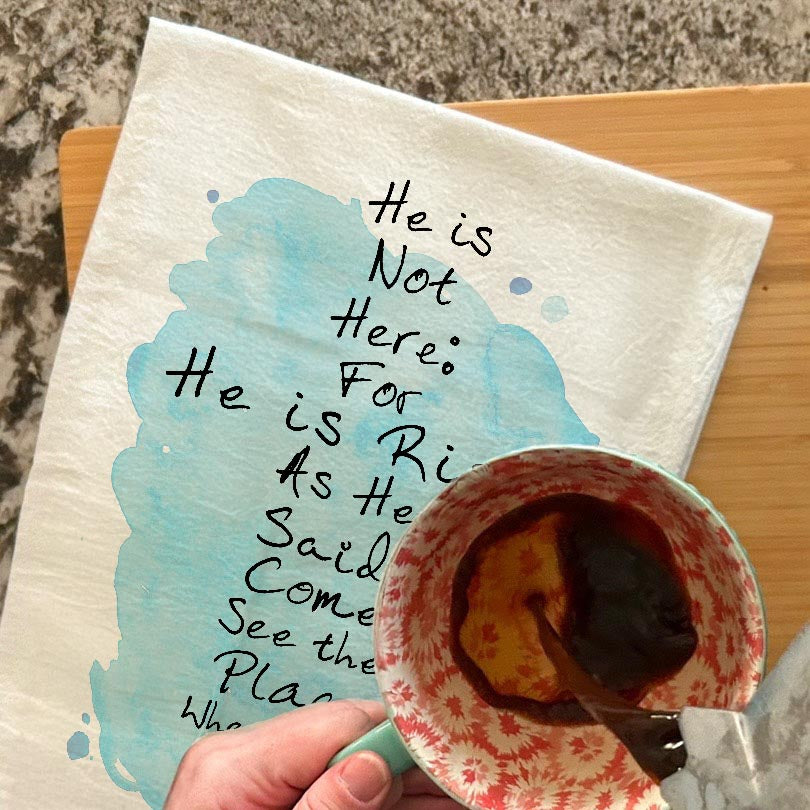 He is
Not
Here:
For
He is Ri
As He
Said
Come
See the
Plac
Whe